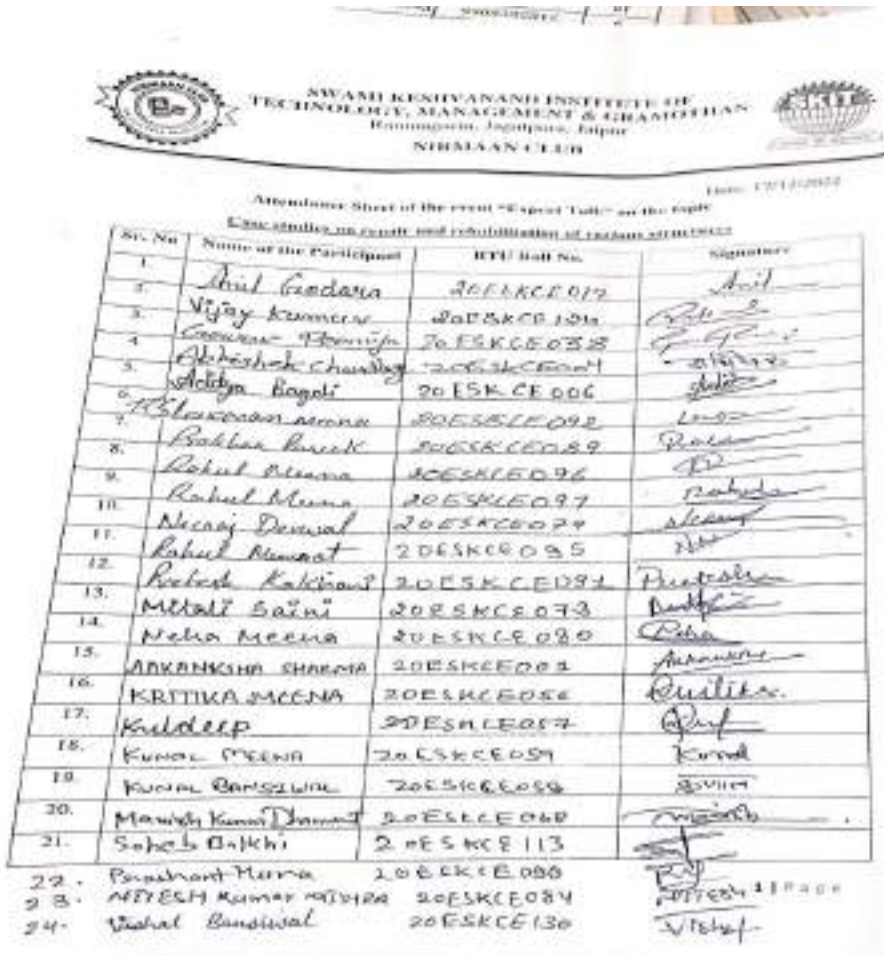 SWAMI KESHVANAND INSTITUTE OF
TECHNOLOGY, MANAGEMENT & GRAMOTHAN
Ramnagaria, Jagatpura, Jaipur
NIRMAAN CLUB
SKIT
Attendance Sheet of the event "Expert Talk" on the topic
Case studies on repair and rehabilitation of various structures
Sr. No Name of the Participant RTU Roll No. Signature
1. Anil Godara 20ESKCE017 Anil
2. Vijay Kumar
3. 20ESKCE038
4. Abhishek
5. Aditya Bagdi 20ESKCE006
6. Meena 20ESKCE092
7. Prakhar Pareek 20ESKCE089
8. Rahul Meena 20ESKCE096
9. Rahul Meena 20ESKCE097
10. Neeraj 20ESKCE079
11. Rahul 20ESKCE095
12. 20ESKCE091
13. Mitali Saini 20ESKCE073
14. Neha Meena 20ESKCE080 Neha
15. AAKANKSHA SHARMA 20ESKCE001
16. KRITIKA MEENA 20ESKCE056 Kritika.
17. Kuldeep 20ESKCE057
18. KUNAL MEENA 20ESKCE059 Kunal
19. KUNAL BANSIWAL 20ESKCE058
20. Manish Kumar 20ESKCE068 Manish
21. 20ESKCE113
22. Prashant Meena 20ESKCE088
23. NITESH Kumar 20ESKCE084 NITESH 1 | P a g e
24. Vishal Bansiwal 20ESKCE130 Vishal